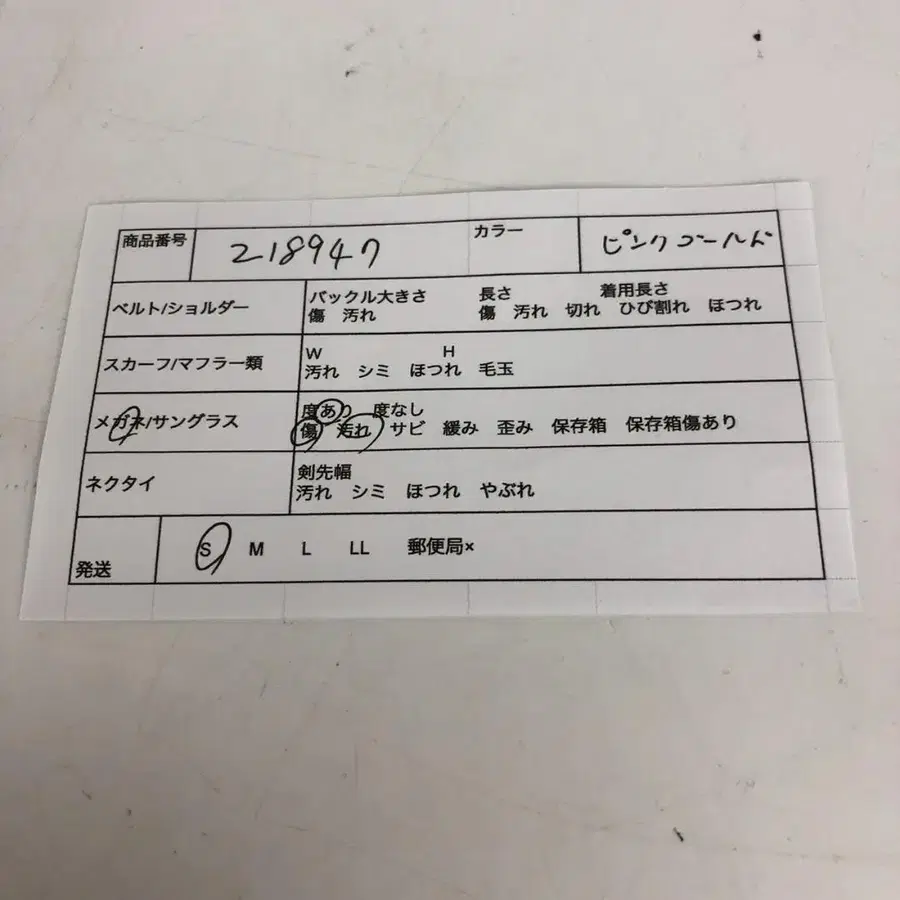 商品番号 218947 カラー ピンクゴールド
ベルト/ショルダー
バックル大きさ 長さ 着用長さ
傷 汚れ 傷 汚れ 切れ ひび割れ ほつれ
スカーフ/マフラー類
W H
汚れ シミ ほつれ 毛玉
メガネ/サングラス
度あり 度なし
傷 汚れ サビ 緩み 歪み 保存箱 保存箱傷あり
ネクタイ
剣先幅
汚れ シミ ほつれ やぶれ
発送 S M L LL 郵便局×